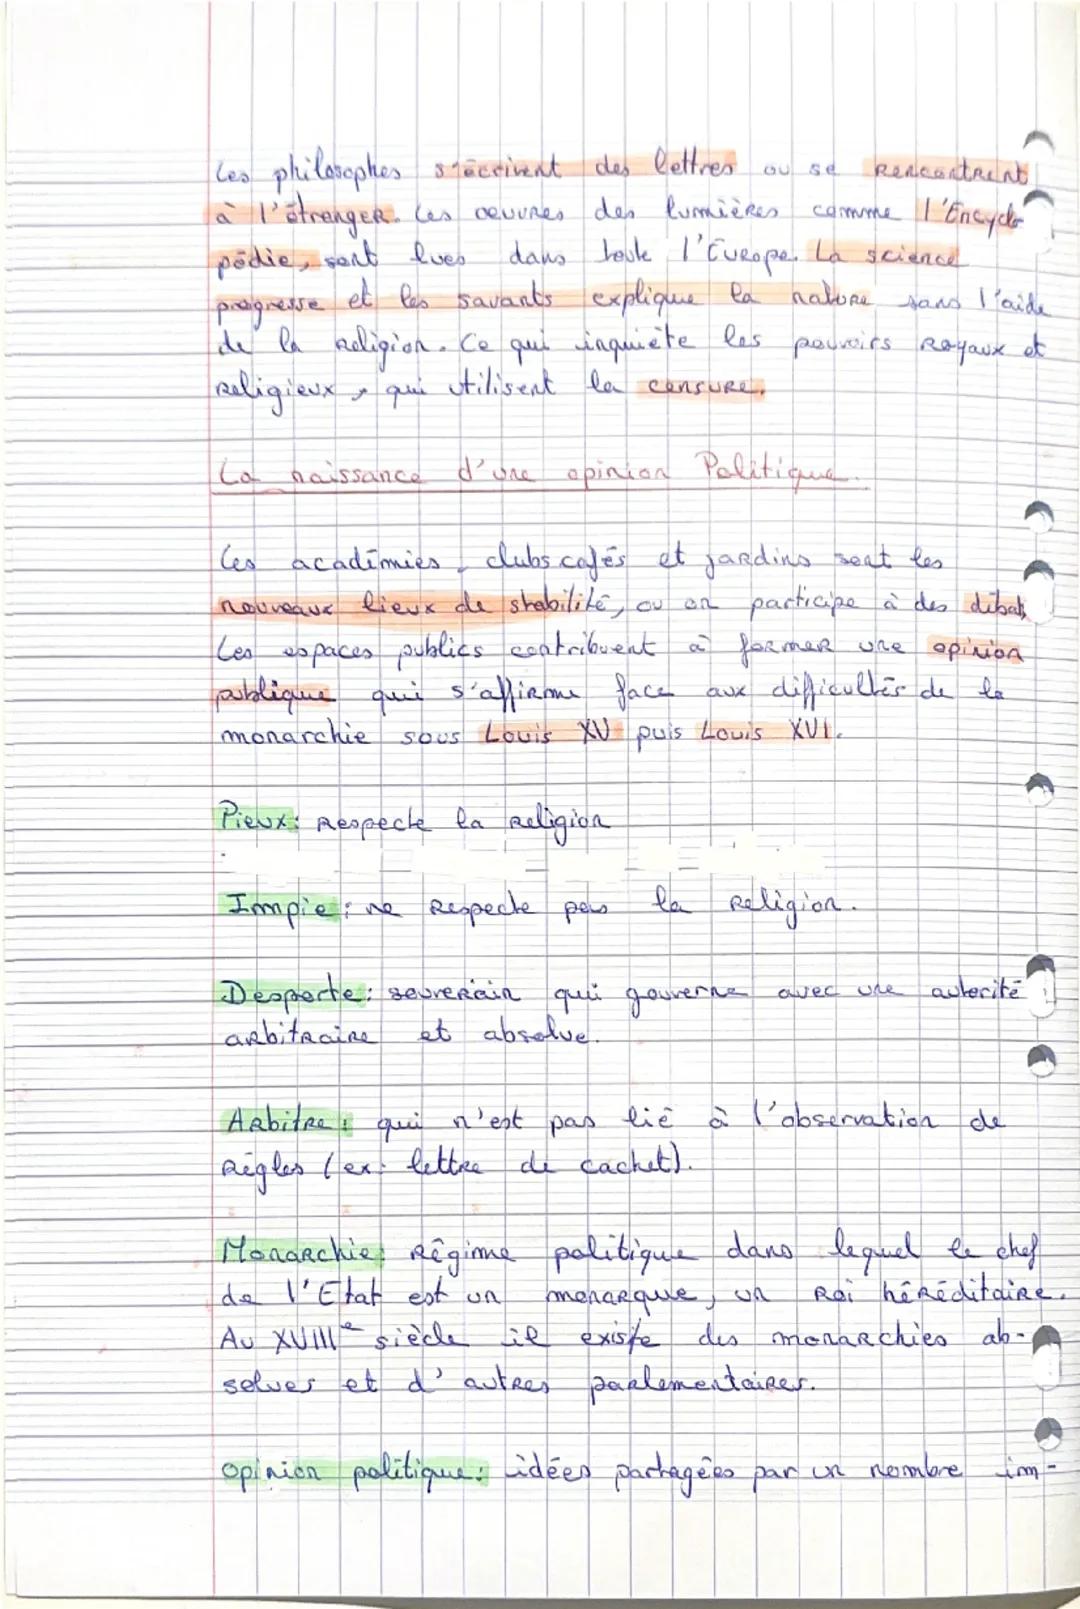 Les philosophes s'écrivent des lettres ou se rencontrent
à l'étranger. Les œuvres des lumières comme l'Encyclo
pédie, sont lues dans toute l'Europe. La science
progresse et les savants explique la nature sans l'aide
de la religion. Ce qui inquiète les pouvoirs royaux et
religieux, qui utilisent la censure.
La naissance d'une opinion Politique.
Les académies, clubs cafés et jardins sont les
nouveaux lieux de stabilité, ou on participe à des débats
Les espaces publics contribuent à former une opinion
publique qui s'affirme face aux difficultés de la
monarchie sous Louis XV puis Louis XVI.
Pieux: respecte la religion
Impie: ne respecte pas la religion.
Despote: souverain qui gouverne avec une autorité
arbitraire et absolue.
Arbitre: qui n'est pas lié à l'observation de
règles (ex: lettre de cachet).
Monarchie: Régime politique dans lequel le chef
de l'Etat est un monarque, un Roi héréditaire.
Au XVIIIe siècle il existe des monarchies ab-
solues et d'autres parlementaires.
Opinion politique: idées partagées par un nombre im-